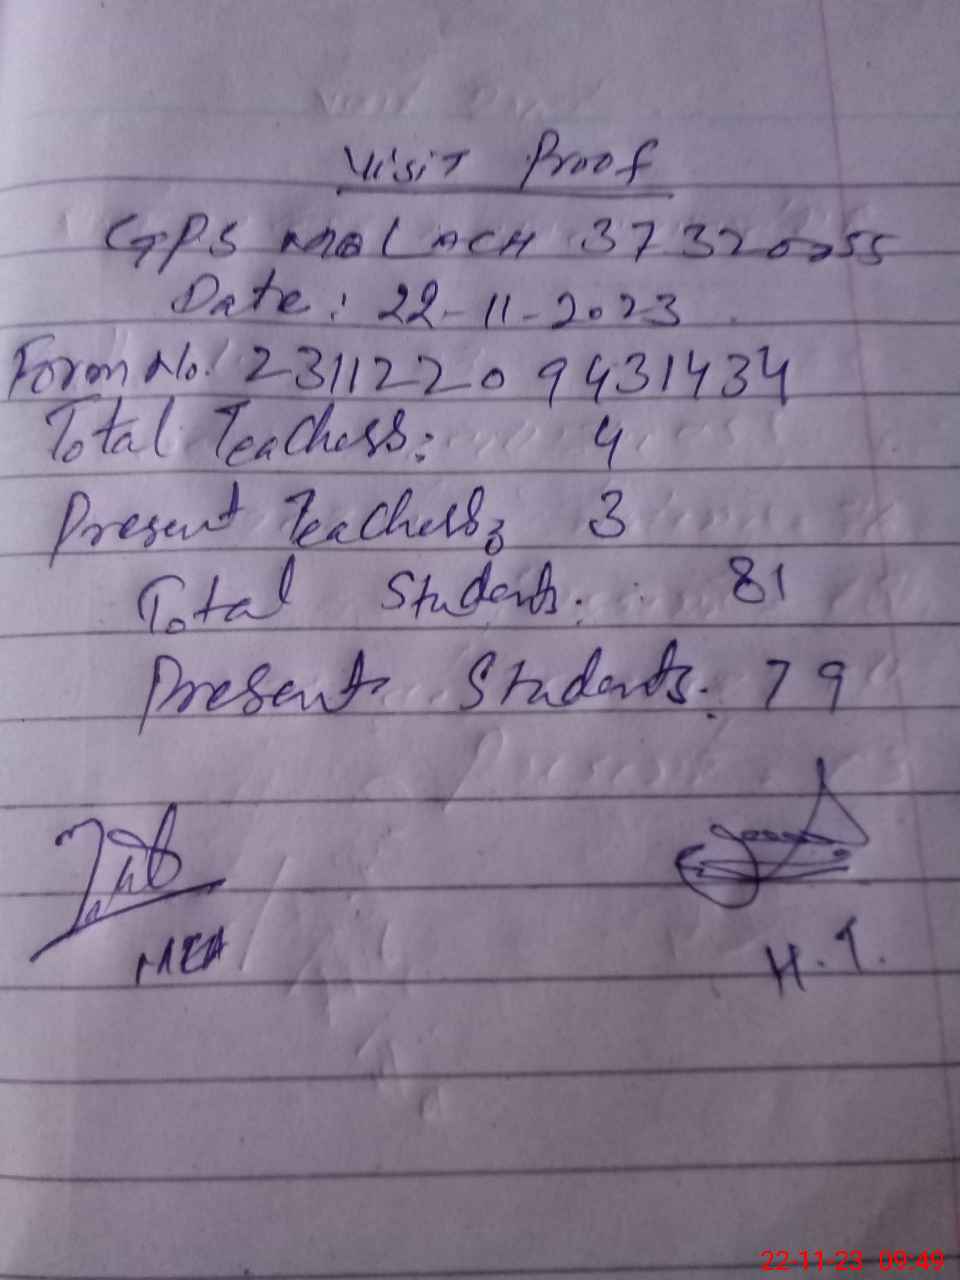 Visit Proof
GPS MALACH 37320255
Date: 22-11-2023
Form No. 23112209431434
Total Teachers: 4
Present Teachers: 3
Total Students: 81
Present Students: 79
MEA
H.T.
22-11-23 09:49